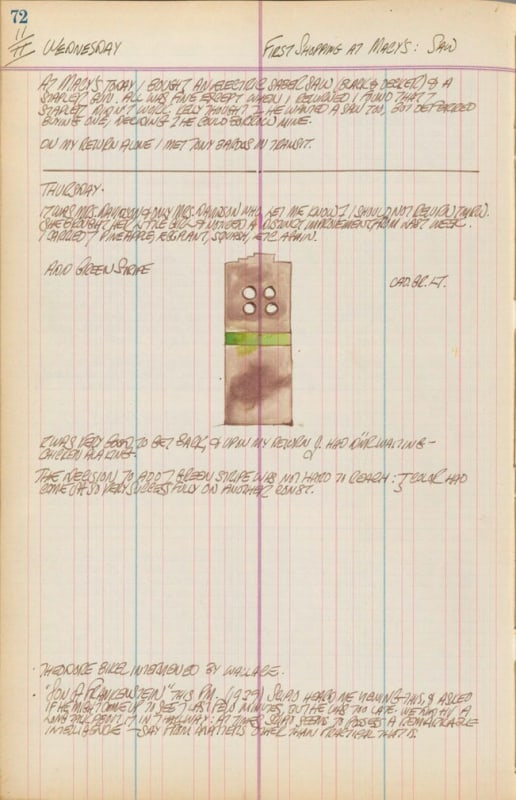 72
11/11 WEDNESDAY FIRST SHOPPING AT MACY'S: SAW
AT MACY'S TODAY I BOUGHT AN ELECTRIC SABER SAW (BLACK & DECKER) & A
STAPLER GUN. ALL WAS FINE EXCEPT WHEN I RETURNED I FOUND THAT
STAPLER DIDN'T WORK. THOUGHT HE WANTED A SAW TOO, BUT DEFERRED
BUYING ONE, DECIDING HE COULD BORROW MINE.
ON MY RETURN ALONE I MET TONY IN TRANSIT.
THURSDAY.
IT WAS MRS. DAVIDSON & ONLY MRS. DAVIDSON WHO LET ME KNOW I SHOULD NOT
SHE BROUGHT HER & NOTICED A DISTINCT IMPROVEMENT FROM LAST WEEK.
I CARRIED PINEAPPLE, EGGPLANT, SQUASH, ETC. AGAIN.
ADD GREEN STRIPE
CAD. GR. LT.
IT WAS VERY GOOD TO GET BACK, & UPON MY RETURN J. HAD DINNER WAITING –
CHICKEN A LA KING.
THE DECISION TO ADD GREEN STRIPE WAS NOT HARD TO REACH: COLOR HAD
COME OFF SO VERY SUCCESSFULLY ON ANOTHER CONST.
THEODORE BIKEL INTERVIEWED BY WALLACE.
"SON OF FRANKENSTEIN" THIS P.M. (9.29) HEARD ME VIEWING THIS, & ASKED
IF HE MIGHT COME UP TO SEE LAST FEW MINUTES, BUT HE WAS TOO LATE. WE HAD A
LONG TALK IN HALLWAY: AT TIMES SEEMS TO POSSESS A REMARKABLE
INTELLIGENCE – SAY FROM MATTERS OTHER THAN PRACTICAL THAT IS.